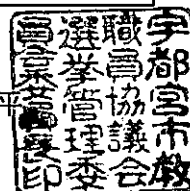 宇都宮市教
職員協議会
選挙管理委
員 印
平